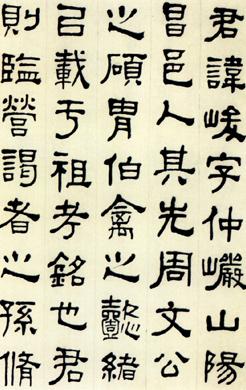 君諱峻字仲巖山陽
昌邑人其先周文公
之碩胄伯禽之懿緒
已載亏祖考銘也君
則監營謁者之孫脩